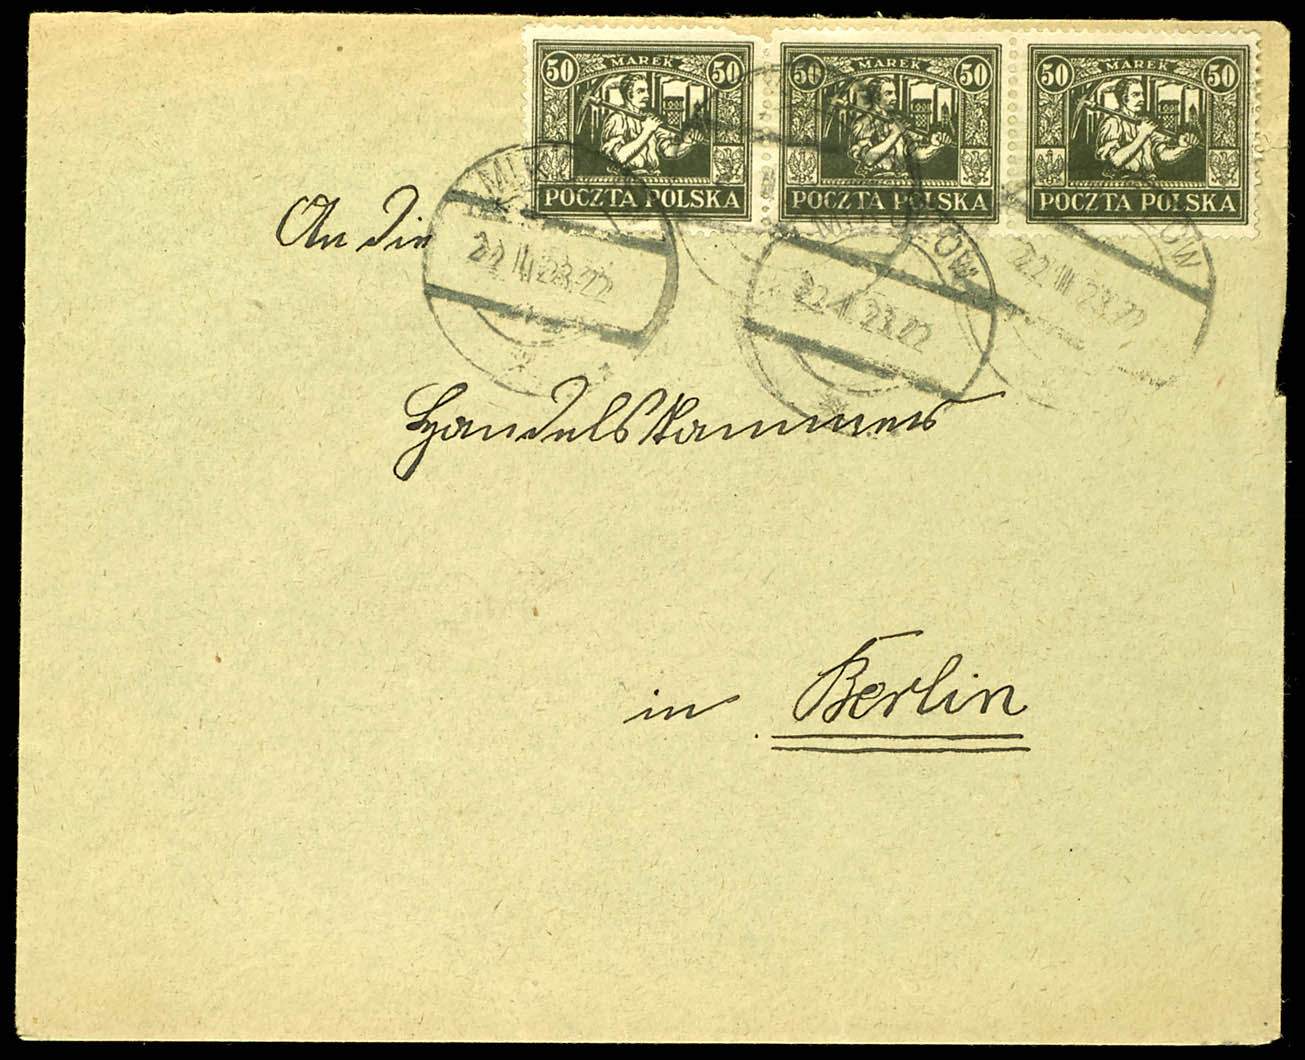 50 MAREK 50
POCZTA POLSKA
50 MAREK 50
POCZTA POLSKA
50 MAREK 50
POCZTA POLSKA
22 III 23.22
22 23.22
22 III 23.22
An die
Handelskammer
in Berlin